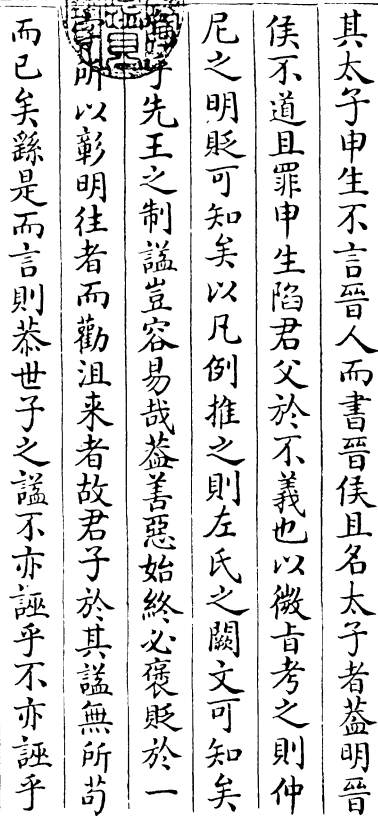 其太子申生不言晉人而書晉侯且名太子者葢明晉
侯不道且罪申生陷君父於不義也以微旨考之則仲
尼之明貶可知矣以凡例推之則左氏之闕文可知矣
乎先王之制謚豈容易哉葢善惡始終必褒貶於一
字所以彰明往者而勸沮来者故君子於其謚無所茍
而已矣繇是而言則恭世子之謚不亦誣乎不亦誣乎